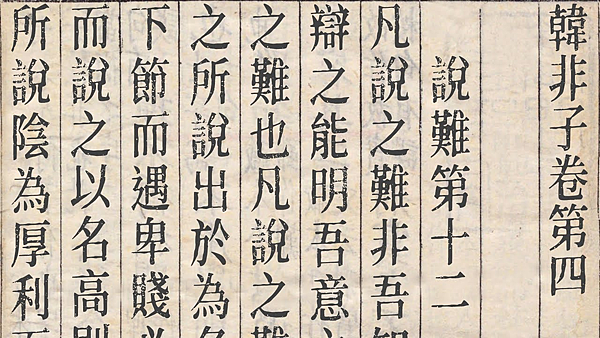 韓非子卷第四
說難第十二
凡說之難非吾
辯之能明吾意
之難也凡說之
之所說出於為
下節而遇卑賤
而說之以名高
所說陰為厚利